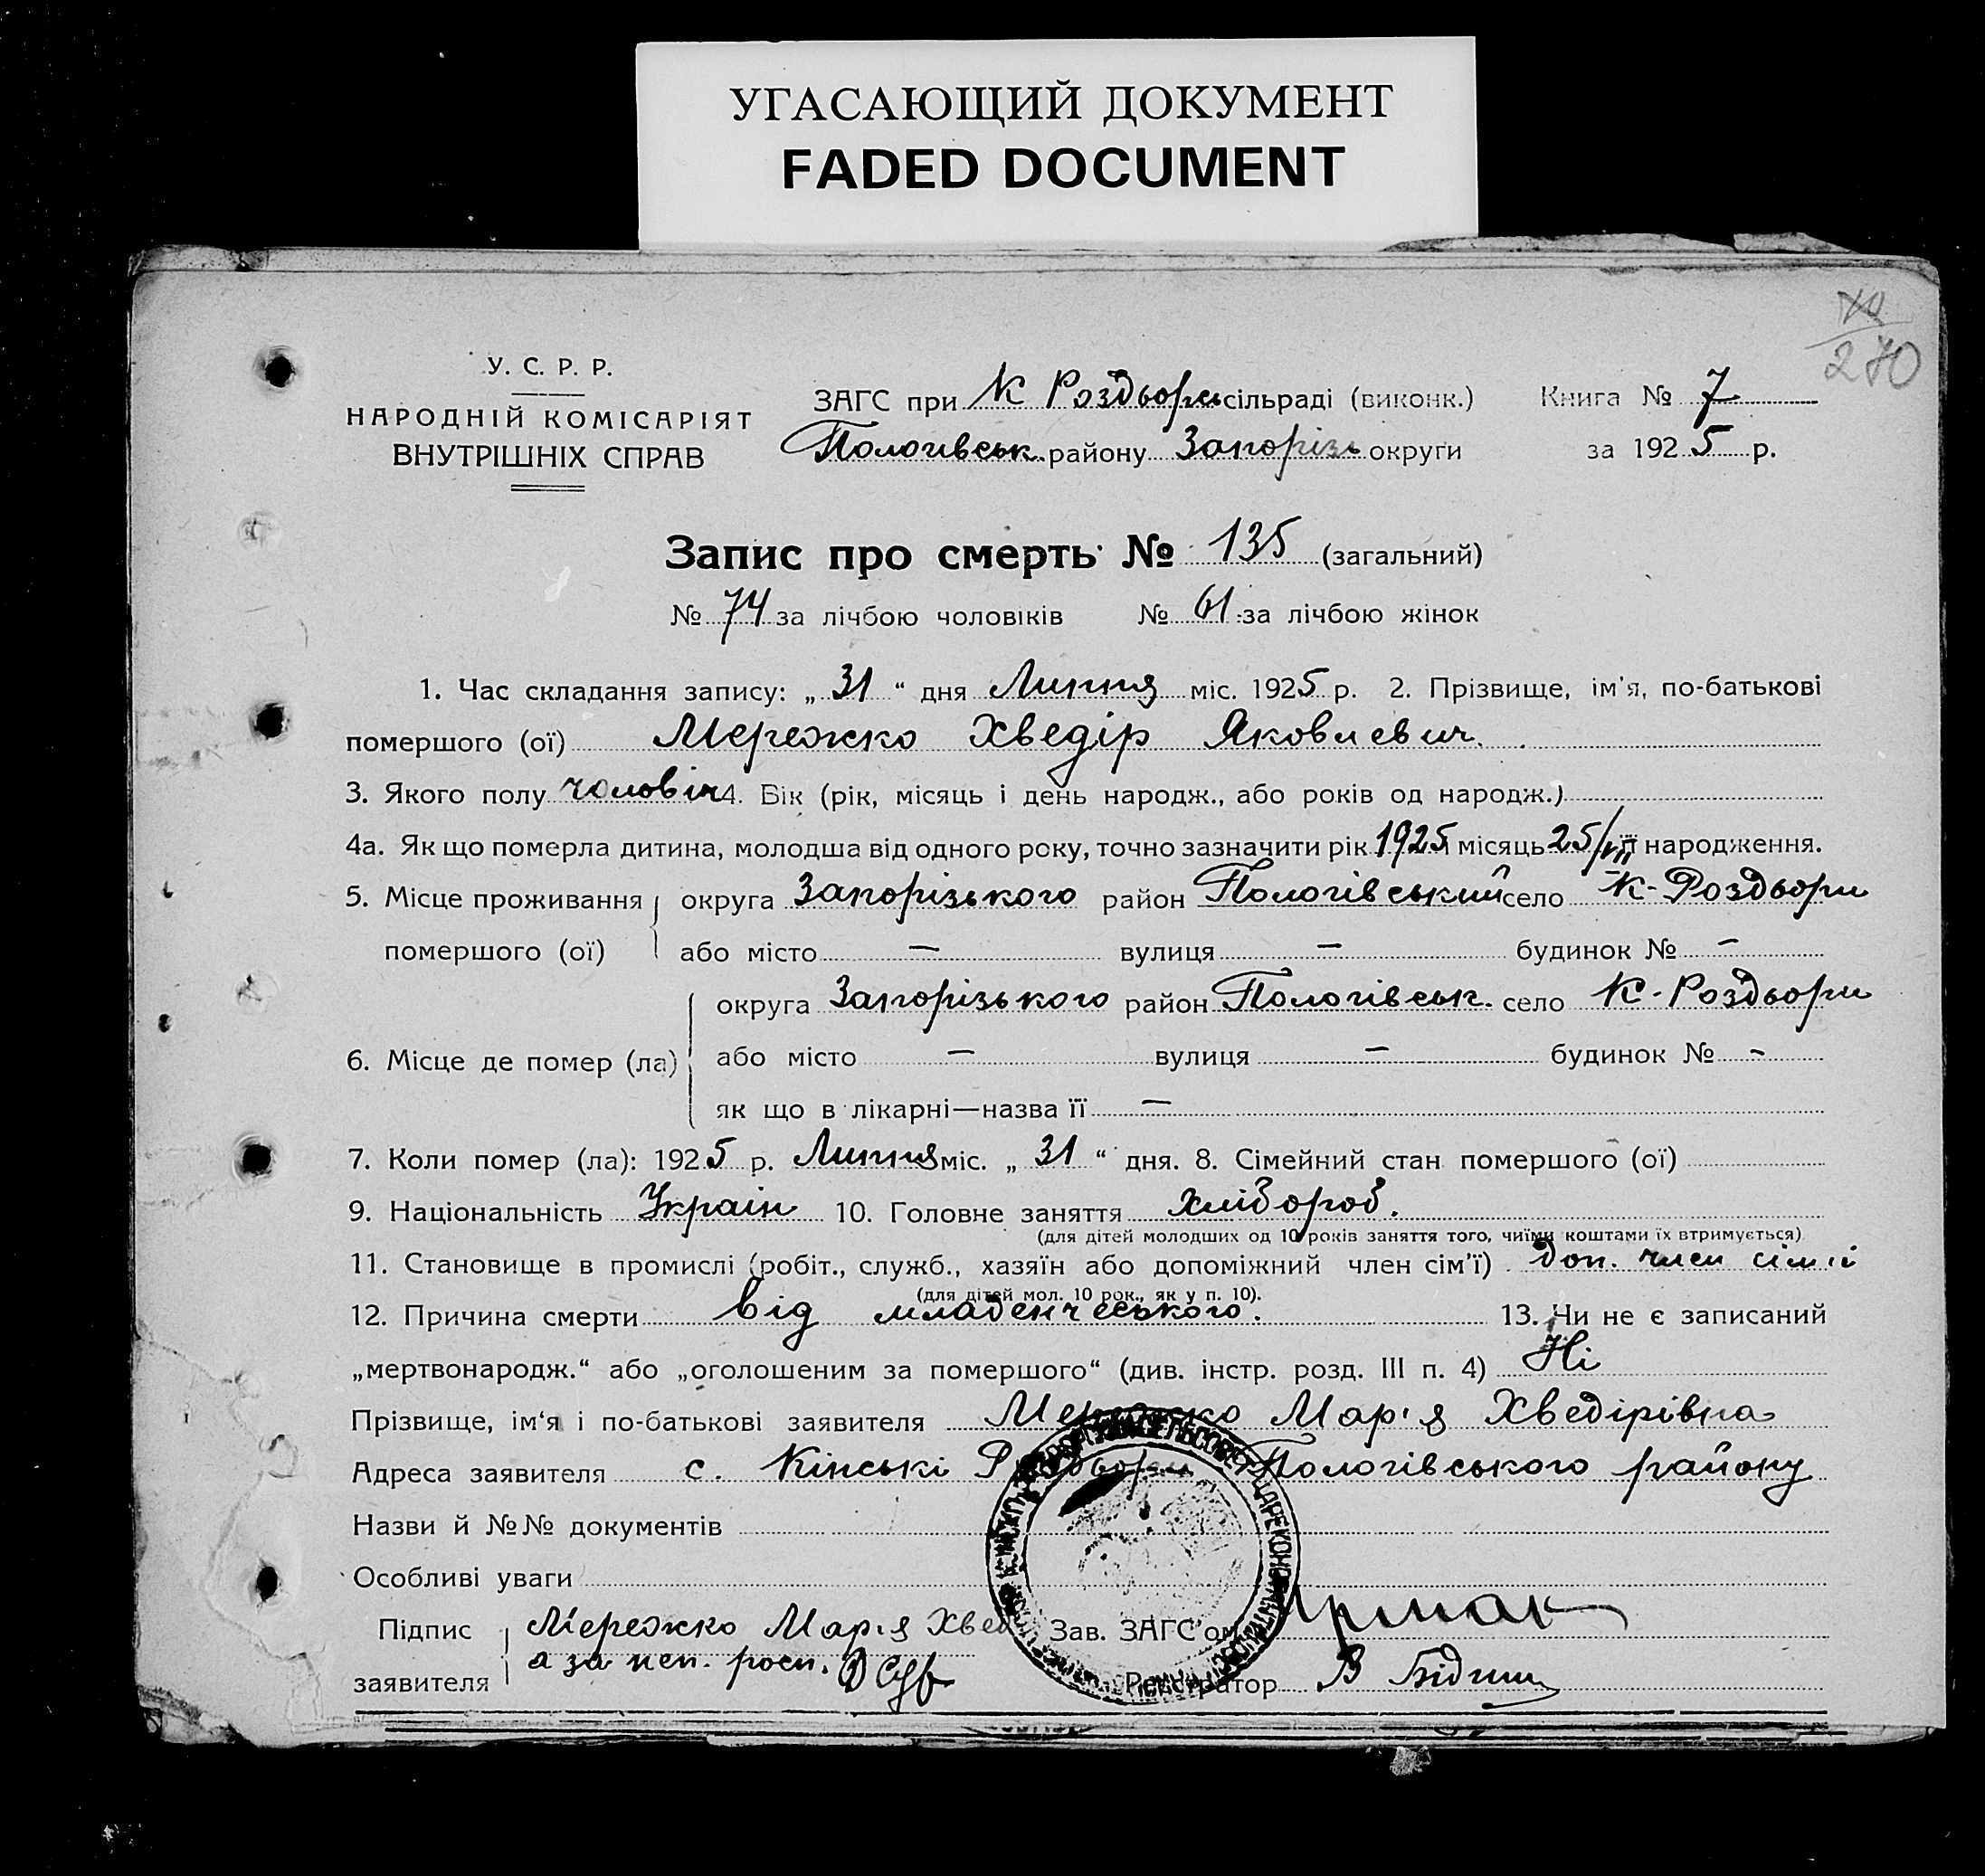 УГАСАЮЩИЙ ДОКУМЕНТ
FADED DOCUMENT
270
У. С. Р. Р.
НАРОДНІЙ КОМІСАРІЯТ
ВНУТРІШНІХ СПРАВ
ЗАГС при К Роздори сільраді (виконк.) Книга № 7
Пологівськ. району Запорізь округи за 1925 р.
Запис про смерть № 135 (загальний)
№ 74 за лічбою чоловіків № 61 за лічбою жінок
1. Час складання запису: „ 31 “ дня Липня міс. 1925 р. 2. Прізвище, ім'я, по-батькові
помершого (ої) Мережко Хведір Яковлевич.
3. Якого полу чоловіч 4. Вік (рік, місяць і день народж., або років од народж.)
4а. Як що померла дитина, молодша від одного року, точно зазначити рік 1925 місяць 25/VII її народження.
5. Місце проживання округа Запорізького район Пологівський село К-Роздьори
помершого (ої) або місто — вулиця — будинок № —
округа Запорізького район Пологівськ. село К-Роздьори
6. Місце де помер (ла) або місто — вулиця — будинок № -
як що в лікарні—назва її —
7. Коли помер (ла): 1925 р. Липня міс. „ 31 “ дня. 8. Сімейний стан помершого (ої)
9. Національність Украін 10. Головне заняття Хлібороб.
(для дітей молодших од 10 років заняття того, чиїми коштами їх втримується)
11. Становище в промислі (робіт., служб., хазяїн або допоміжний член сім'ї) Доп. член сімії
(для дітей мол. 10 рок., як у п. 10).
12. Причина смерти від младенчеського. 13. Чи не є записаний
„мертвонародж.“ або „оголошеним за помершого“ (див. інстр. розд. III п. 4) Ні
Прізвище, ім‘я і по-батькові заявителя Мережко Мар'я Хведірівна
Адреса заявителя с. Кінські Роздьори Пологівського району
Назви й №№ документів
Особливі уваги
Підпис Мережко Мар'я Хвед Зав. ЗАГС'ом
заявителя а за неп. росп. Реєстратор В